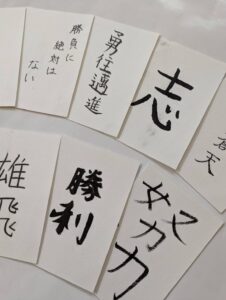 勝負に
絶対は
ない
勇往邁進
志
蒼天
雄飛
勝利
努力